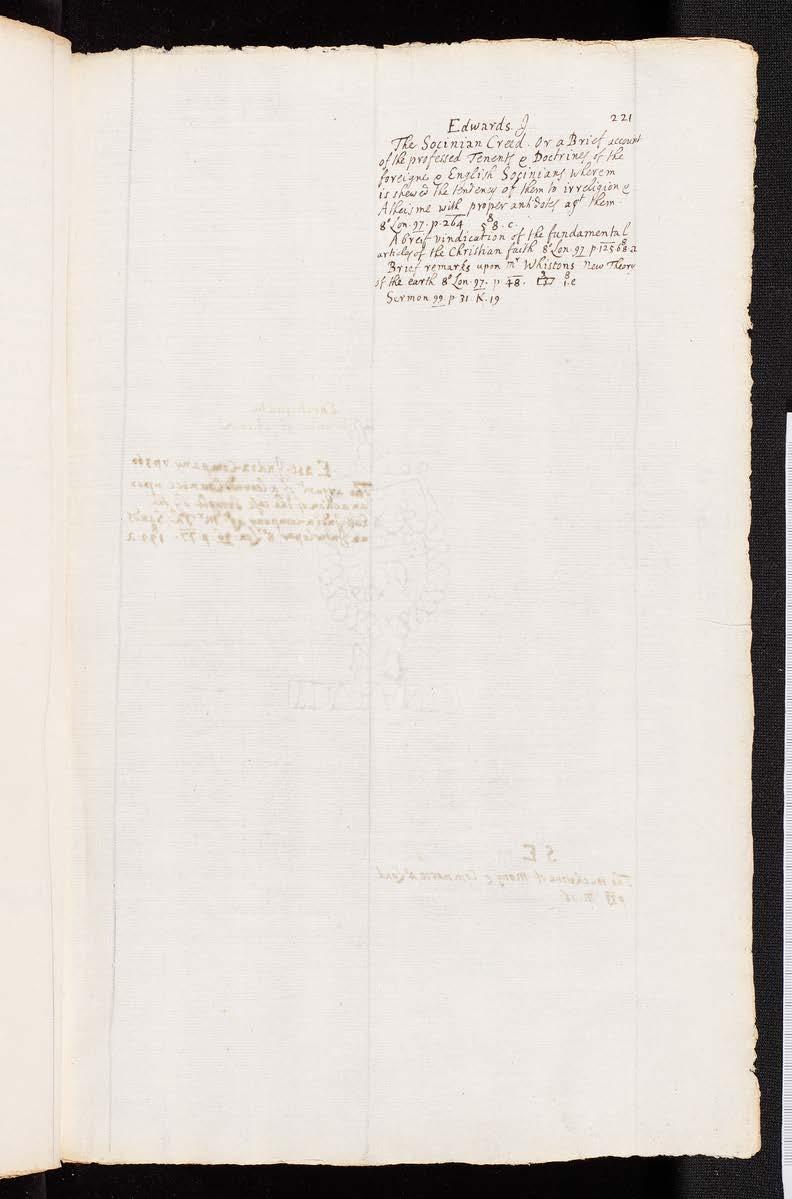 221
Edwards. J
The Socinian Creed. Or a Brief account
of the professed Tenents & Doctrines of the
foreigne & English Socinians wherein
is shewed the tendency of them to irreligion &
Atheisme with proper antidotes agt them.
8° Lon. 97. p. 264 5 8/8. c.
A breif vindication of the fundamental
articles of the Christian faith 8° Lon. 97 p 125 6 8/8 a
Brief remarks upon Mr Whistons New Theory
of the earth 8° Lon. 97. p 48. 8/1. c
Sermon 99. p 31. K. 19